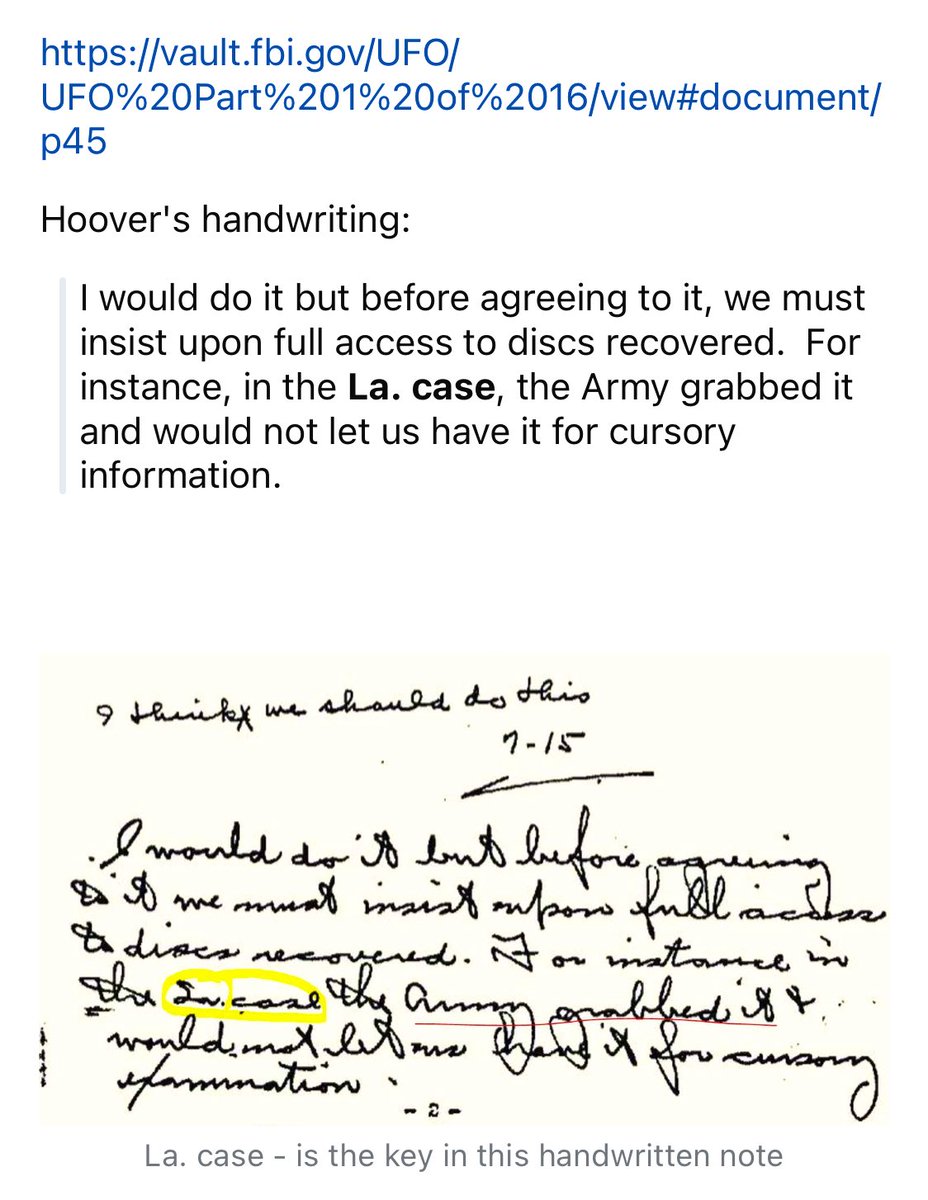 https://vault.fbi.gov/UFO/
UFO%20Part%201%20of%2016/view#document/
p45
Hoover's handwriting:
I would do it but before agreeing to it, we must
insist upon full access to discs recovered. For
instance, in the La. case, the Army grabbed it
and would not let us have it for cursory
information.
I think we should do this
7-15
I would do it but before agreeing
to it we must insist upon full access
to discs recovered. For instance in
the case the Army grabbed it &
would not let us have it for cursory
examination.
- 2 -
La. case - is the key in this handwritten note